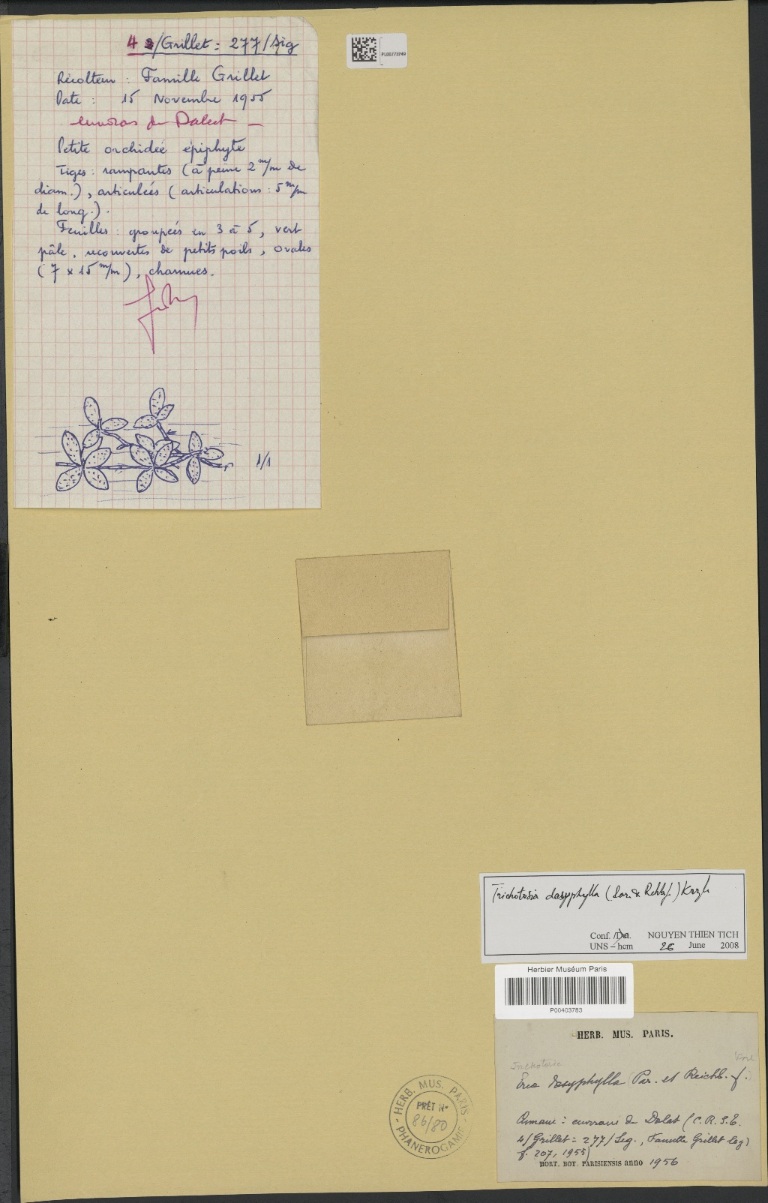 4 /Grillet : 277/Sig
Récolteur : Famille Grillet
Date : 15 Novembre 1955
environs de Dalat
Petite orchidée épiphyte
Tiges : rampantes (à peine 2 m/m de
diam.), articulées (articulations : 5 m/m
de long.).
Feuilles : groupées en 3 à 5, vert
pâle, recouvertes de petits poils, ovales
(7 x 15 m/m), charnues.
1/1
Trichotosia dasyphylla (Par. & Rchb.f.) Krzl
Conf. /Det. NGUYEN THIEN TICH
UNS – hcm 26 June 2008
Herbier Muséum Paris
P00403783
HERB. MUS. PARIS.
Trichotosia
Eria dasyphylla Par. et Reichb. f.
Annam : environs de Dalat (C.R.S.E.
4/Grillet : 277/Sig., Famille Grillet leg.
f. 207, 1955)
HORT. BOT. PARISIENSIS anno 1956
HERB. MUS. PARIS
PRÊT N°
86/80
PHANEROGAMIE